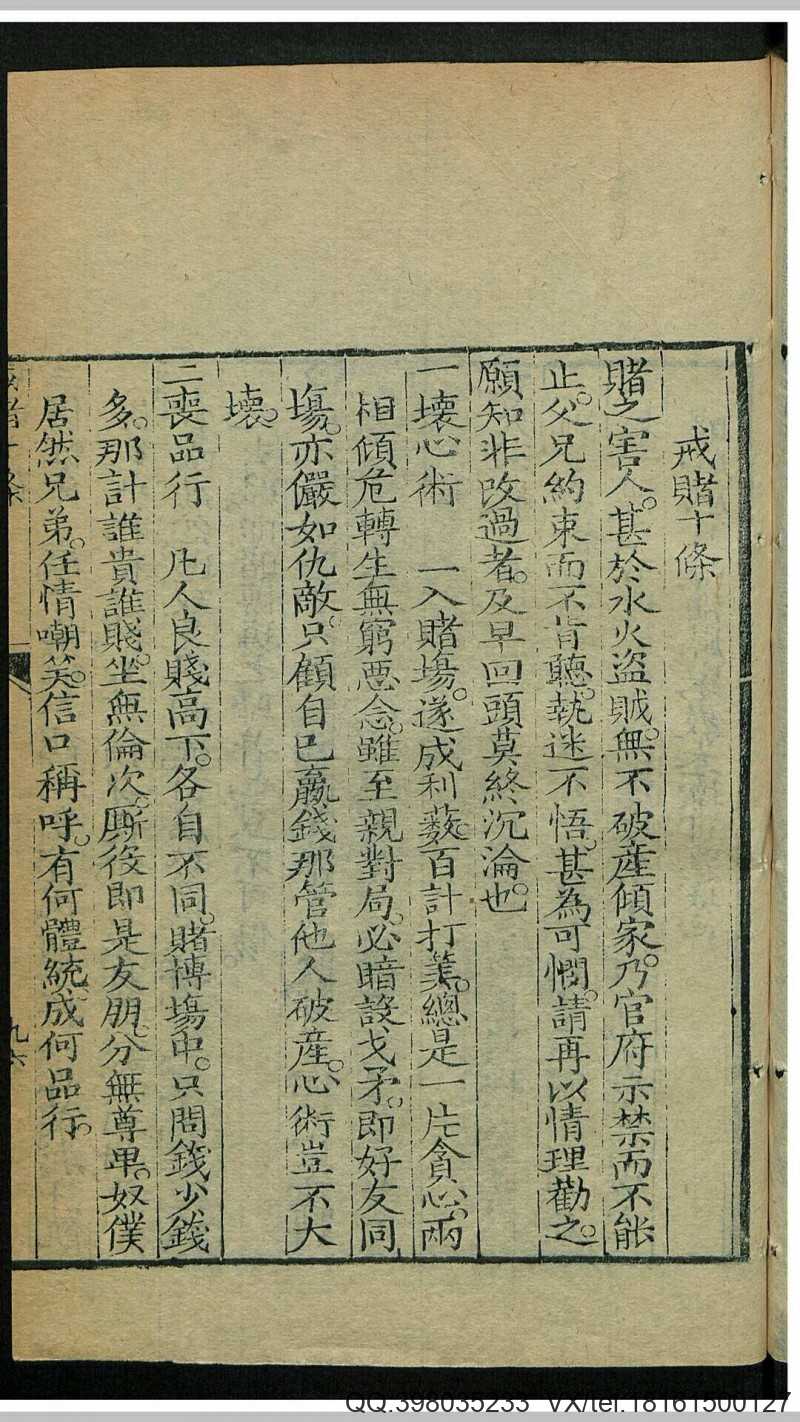 戒賭十條
賭之害人。甚於水火盜賊。無不破產傾家。乃官府示禁而不能
止。父兄約束而不肯聽。執迷不悟。甚為可憫。請再以情理勸之。
願知非改過者。及早回頭莫終沉淪也。
一壞心術　一入賭場。遂成利藪。百計打筭。總是一片貪心。兩
相傾危。轉生無窮惡念。雖至親對局。必暗設戈矛。即好友同
塲。亦儼如仇敵。只顧自己贏錢。那管他人破產。心術豈不大
壞。
二喪品行　凡人良賤高下。各自不同。賭博塲中。只問錢少錢
多。那計誰貴誰賤。坐無倫次。厮役即是友朋。分無尊卑。奴僕
居然兄弟。任情嘲笑。信口稱呼。有何體統。成何品行。
戒賭十條
QQ.398035233 VX/tel:18161500127